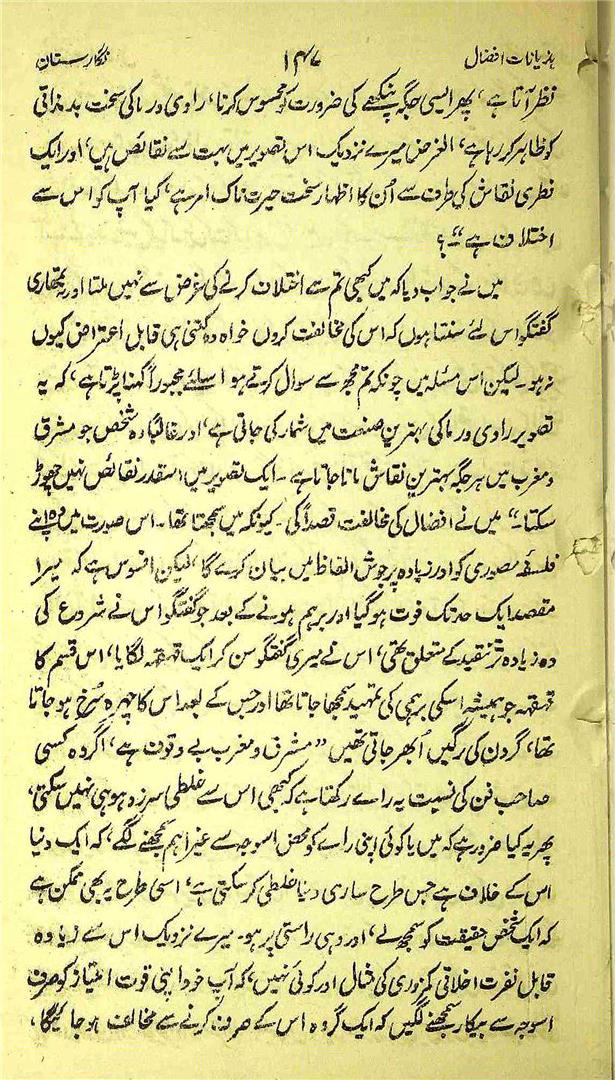 ہذیانات افضال ۱۴۷ نگارستان
نظر آتا ہے، پھر ایسی جگہ پنکھے کی ضرورت کو محسوس کرنا، راوی ورما کی سخت بد مذاقی
کو ظاہر کر رہا ہے، الغرض میرے نزدیک اس تصویر میں بہت سے نقائص ہیں، اور ایک
فطری نقاش کی طرف سے اُن کا اظہار سخت حیرت ناک امر ہے، کیا آپ کو اس سے
اختلاف ہے"۔؟
میں نے جواب دیا کہ میں کبھی تم سے اختلاف کرنے کی غرض سے نہیں ملتا اور تمھاری
گفتگو اس لئے سنتا ہوں کہ اس کی مخالفت کروں خواہ وہ کتنی ہی قابل اعتراض کیوں
نہ ہو۔ لیکن اس مسئلہ میں چونکہ تم مجھ سے سوال کرتے ہو اسلئے مجبوراً کہنا پڑتا ہے، کہ یہ
تصویر راوی ورما کی بہترین صنعت میں شمار کی جاتی ہے، اور غالباً وہ شخص جو مشرق
و مغرب میں ہر جگہ بہترین نقاش مانا جاتا ہے۔ ایک تصویر میں اسقدر نقائص نہیں چھوڑ
سکتا۔" میں نے افضال کی مخالفت قصداً کی۔ کیونکہ میں سمجھتا تھا۔ اس صورت میں وہ اپنے
فلسفۂ مصوری کو اور زیادہ پرجوش الفاظ میں بیان کرے گا، لیکن افسوس ہے کہ میرا
مقصد ایک حد تک فوت ہو گیا اور برہم ہونے کے بعد جو گفتگو اس نے شروع کی
وہ زیادہ تر تنقید کے متعلق تھی، اس نے میری گفتگو سن کر ایک قہقہہ لگایا، اس قسم کا
قہقہہ جو ہمیشہ اسکی برہمی کی تمہید سمجھا جاتا تھا اور جس کے بعد اس کا چہرہ سُرخ ہو جاتا
تھا، گردن کی رگیں اُبھر جاتی تھیں "مشرق و مغرب بے وقوف ہے، اگر وہ کسی
صاحب فن کی نسبت یہ راے رکھتا ہے کہ کبھی اس سے غلطی سرزد ہو ہی نہیں سکتی،
پھر یہ کیا ضرور ہے کہ میں یا کوئی اپنی راے کو محض اسوجہ سے غیر اہم سمجھنے لگے، کہ ایک دنیا
اس کے خلاف ہے جس طرح ساری دنیا غلطی کر سکتی ہے، اسی طرح یہ بھی ممکن ہے
کہ ایک شخص حقیقت کو سمجھ لے، اور وہی راستی پر ہو۔ میرے نزدیک اس سے زیادہ
قابل نفرت اخلاقی کمزوری کی مثال اور کوئی نہیں، کہ آپ خود اپنی قوت امتیاز کو صرف
اسوجہ سے بیکار سمجھنے لگیں کہ ایک گروہ اس کے صرف کرنے سے مخالف ہو جائیگا،